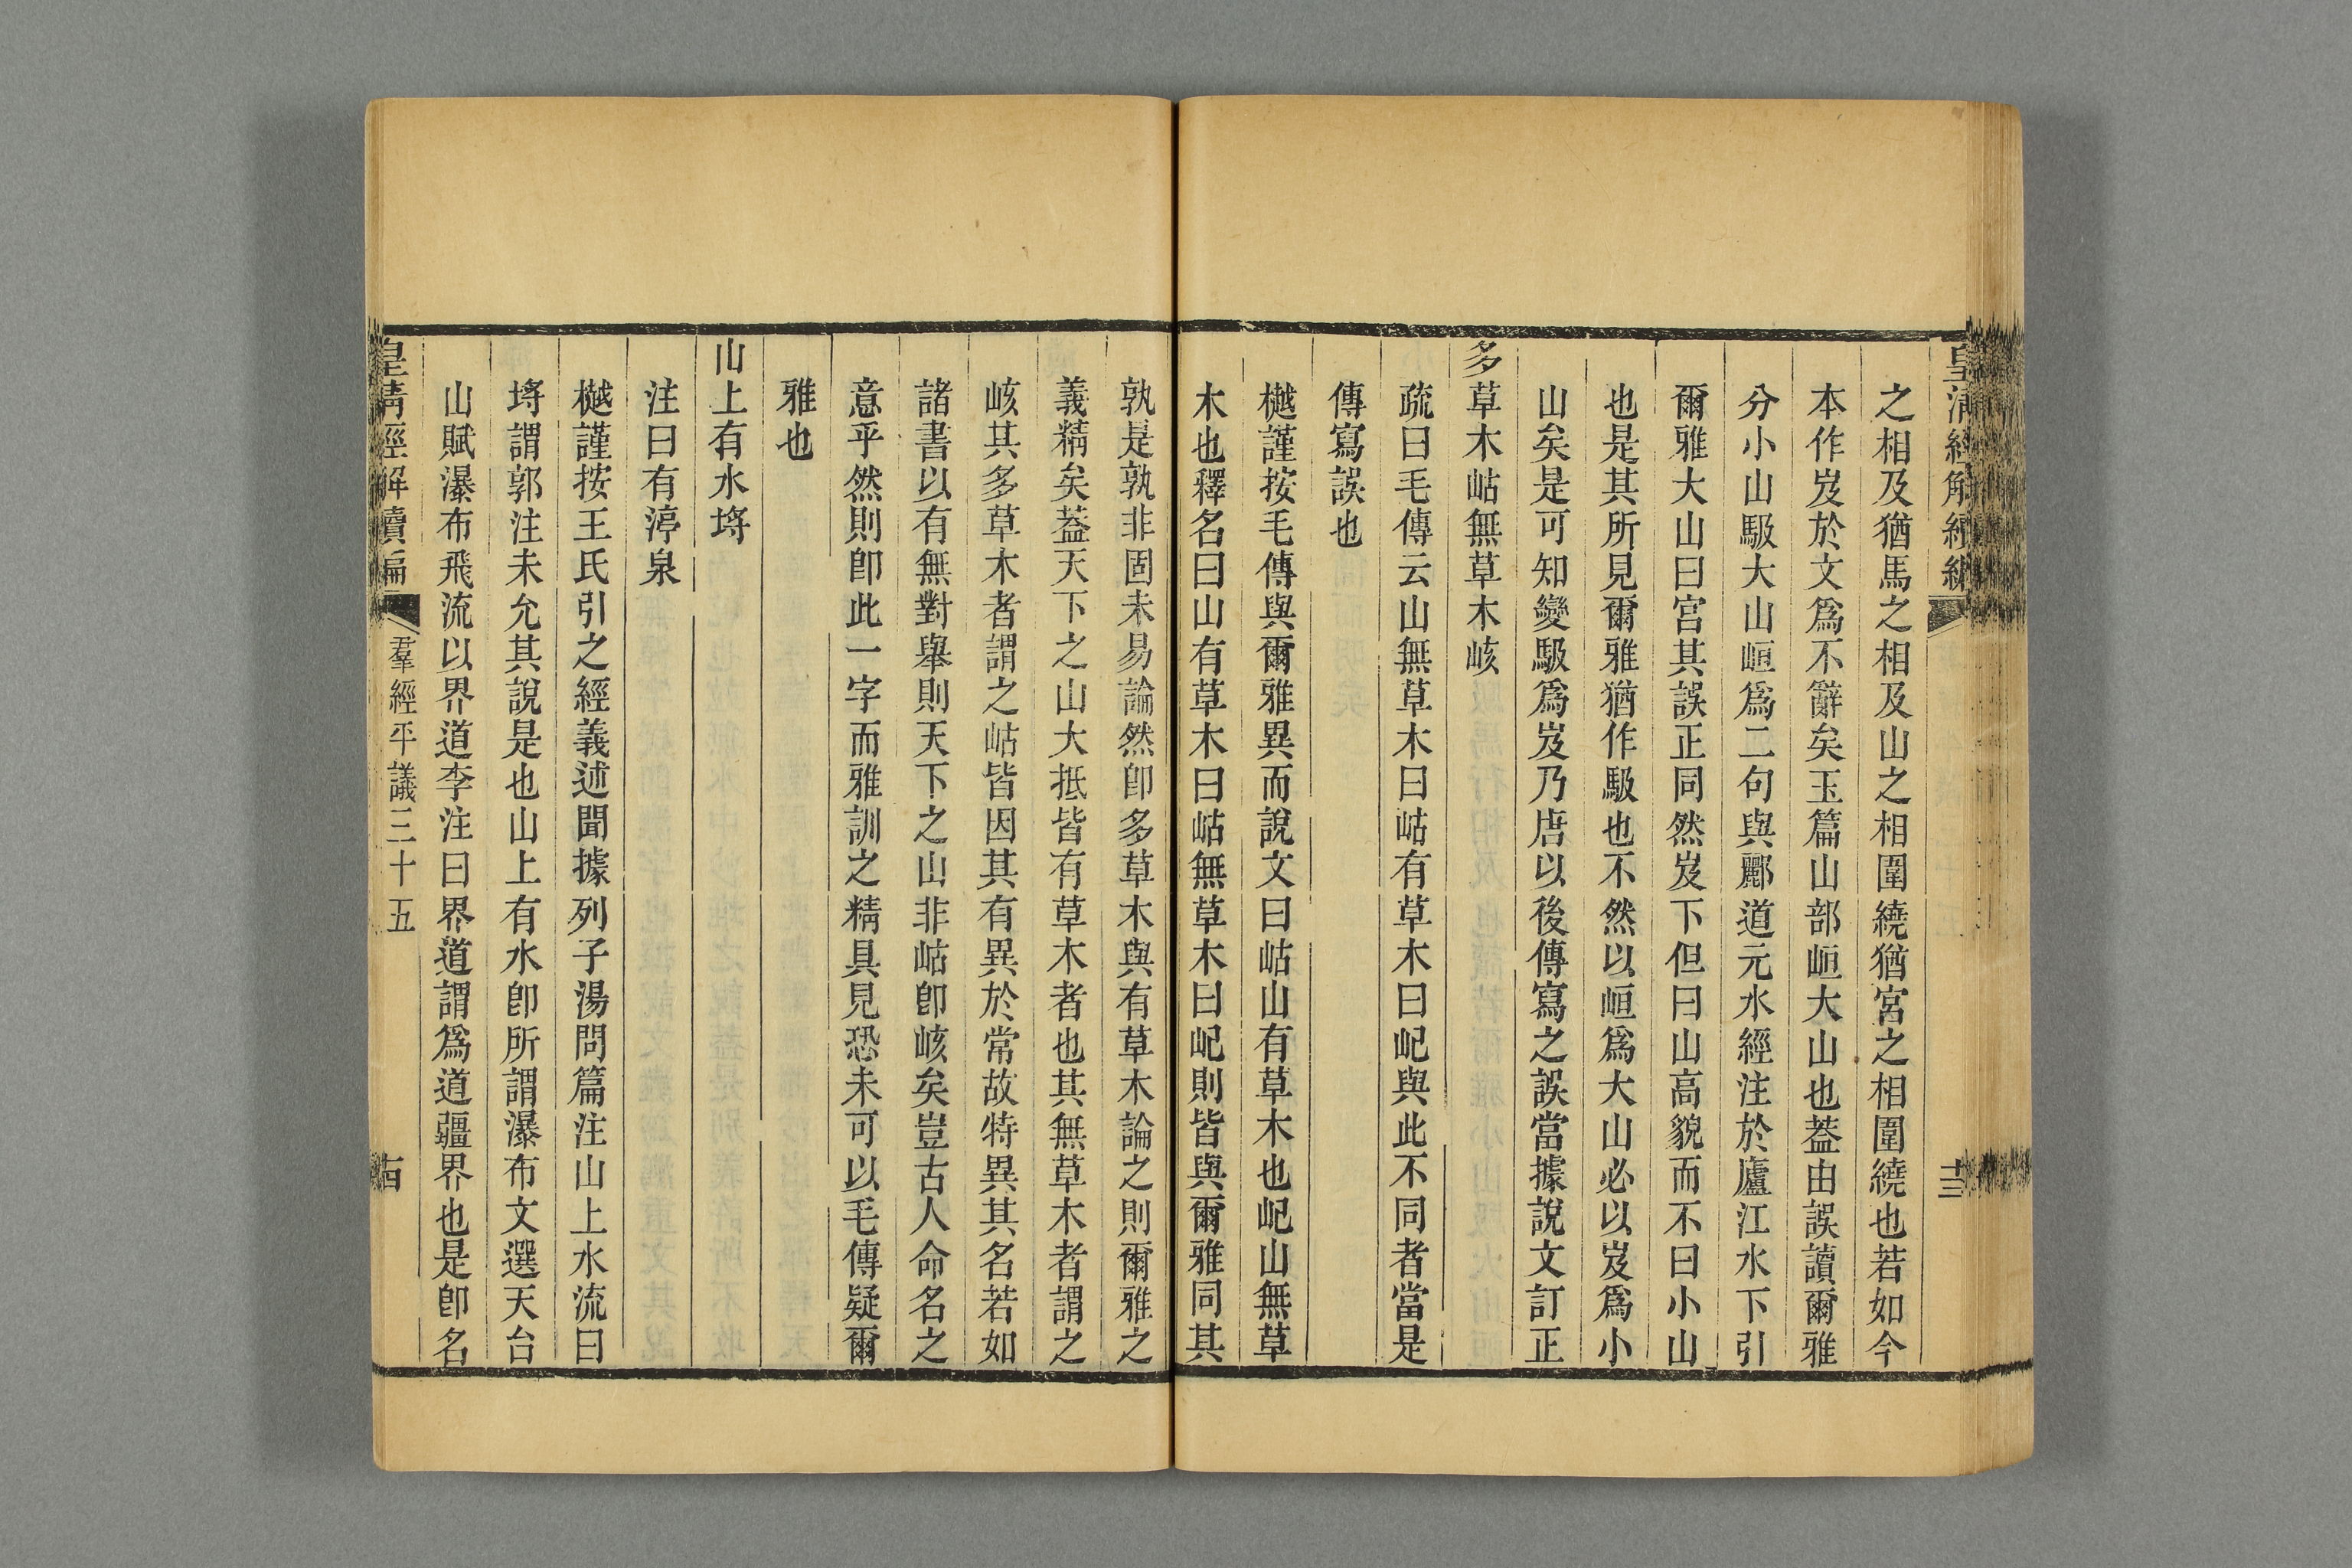 皇清經解續編
十三
之相及猶馬之相及山之相圍繞猶宮之相圍繞也若如今
本作岌於文爲不辭矣玉篇山部峘大山也葢由誤讀爾雅
分小山馺大山峘爲二句與酈道元水經注於廬江水下引
爾雅大山曰宮其誤正同然岌下但曰山高貌而不曰小山
也是其所見爾雅猶作馺也不然以峘爲大山必以岌爲小
山矣是可知變馺爲岌乃唐以後傳寫之誤當據說文訂正
多草木岵無草木峐
疏曰毛傳云山無草木曰岵有草木曰屺與此不同者當是
傳寫誤也
樾謹按毛傳與爾雅異而說文曰岵山有草木也屺山無草
木也釋名曰山有草木曰岵無草木曰屺則皆與爾雅同其
孰是孰非固未易論然卽多草木與有草木論之則爾雅之
義精矣葢天下之山大抵皆有草木者也其無草木者謂之
峐其多草木者謂之岵皆因其有異於常故特異其名若如
諸書以有無對舉則天下之山非岵卽峐矣豈古人命名之
意乎然則卽此一字而雅訓之精具見恐未可以毛傳疑爾
雅也
山上有水埒
注曰有渟泉
樾謹按王氏引之經義述聞據列子湯問篇注山上水流曰
埒謂郭注未允其說是也山上有水卽所謂瀑布文選天台
山賦瀑布飛流以界道李注曰界道謂爲道疆界也是卽名
皇清經解續編
羣經平議三十五
十四